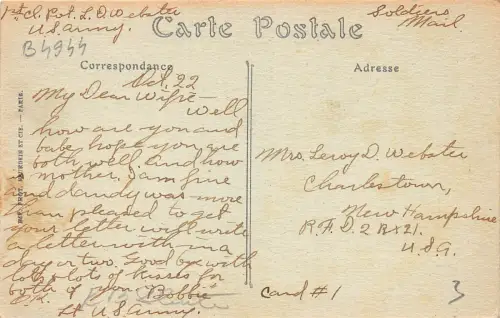 1st cl. Pvt. L. D. Webster
U.S. Army.
B4944
Carte Postale
Soldiers
Mail
Correspondance
Adresse
Oct. 22
My Dear Wife —
Well
how are you and
babe hope you are
both well. and how
mother. I am fine
and dandy was more
than pleased to get
your letter will write
a letter with-in a
day or two. Good bye with
lots & lots of kisses for
both of you Bobbie
O.K.
Lt U.S. Army.
PARIS.
Mrs. Leroy D. Webster
Charlestown,
New Hampshire
R.F.D. 2 Bx 21.
U.S.A.
card #1
3